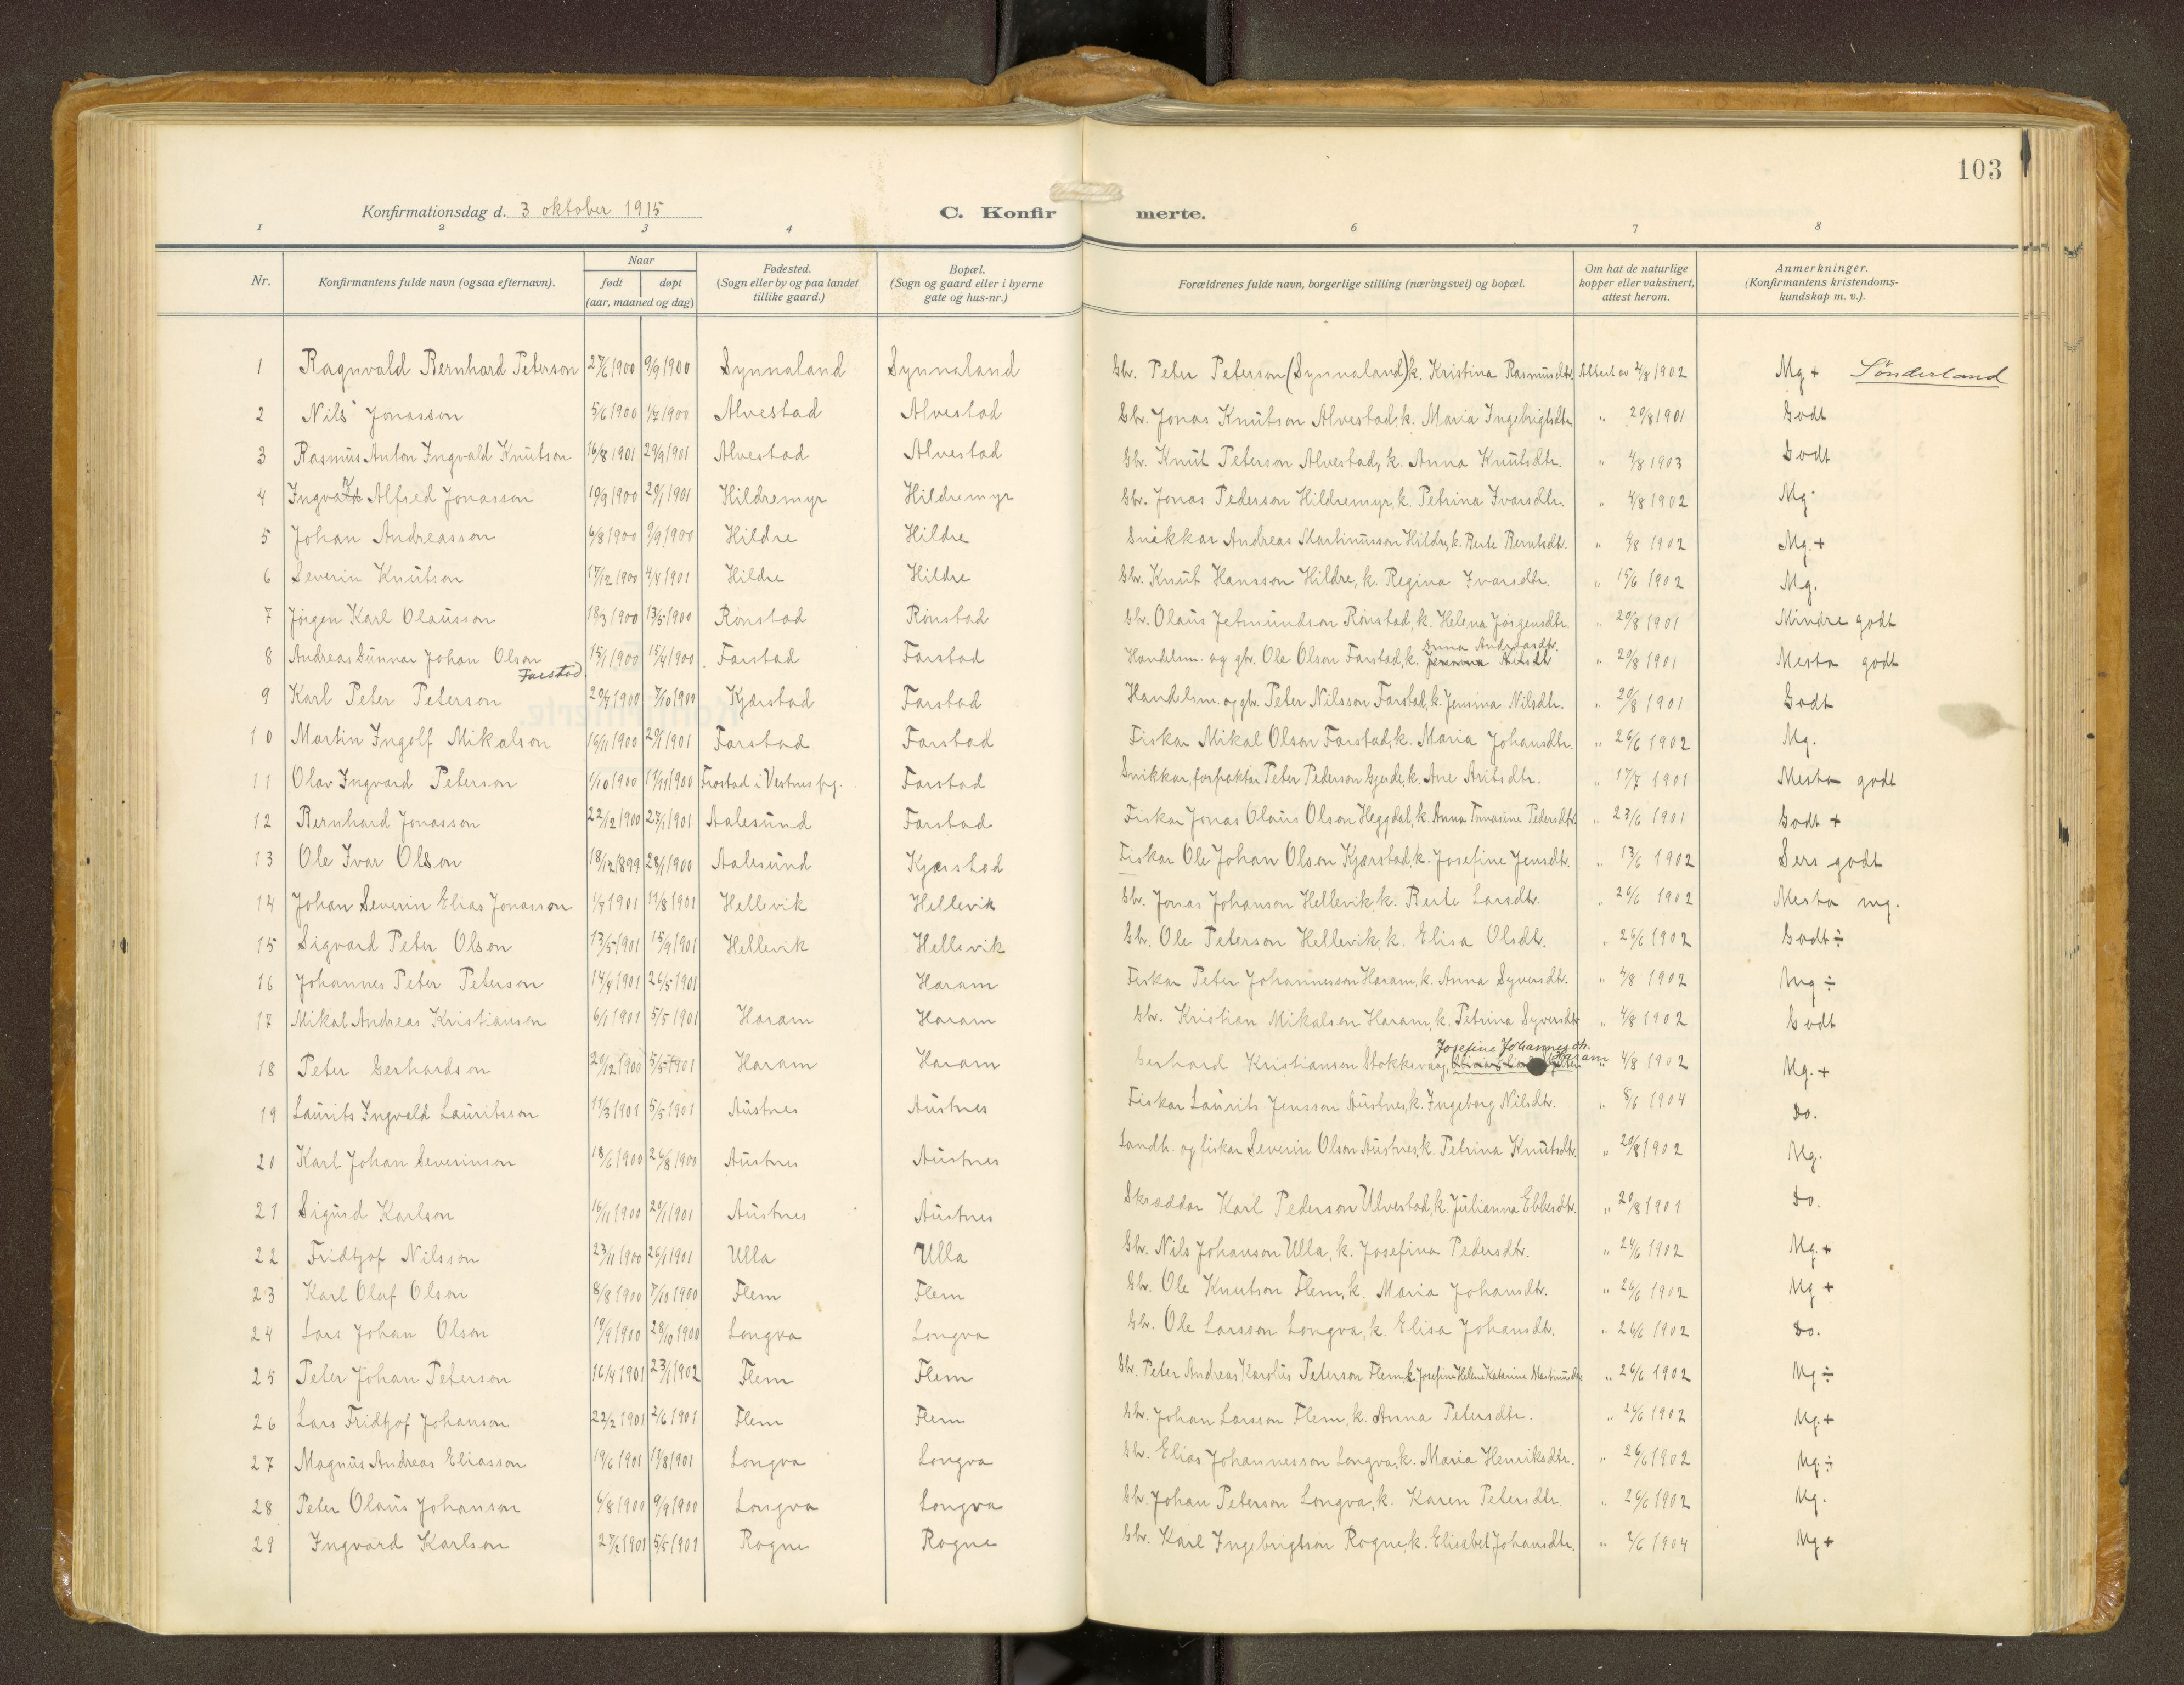 103
Konfirmationsdag d. 3 oktober 1915
C. Konfirmerte.
1 2 3 4 6 7 8
Nr.
Konfirmantens fulde navn (ogsaa efternavn).
Naar
født døpt
(aar, maaned og dag)
Fødested.
(Sogn eller by og paa landet
tillike gaard.)
Bopæl.
(Sogn og gaard eller i byerne
gate og hus-nr.)
Forældrenes fulde navn, borgerlige stilling (næringsvei) og bopæl.
Om hat de naturlige
kopper eller vaksinert,
attest herom.
Anmerkninger.
(Konfirmantens kristendoms-
kundskap m. v.).
1 Ragnvald Bernhard Peterson 27/6 1900 9/9 1900 Synnaland Synnaland Gbr. Peter Peterson (Synnaland) k. Kristina Rasmusdtr. Attest av 4/8 1902 Mg + Sönderland
2 Nils Jonasson 5/6 1900 1/7 1900 Alvestad Alvestad Gbr. Jonas Knutson Alvestad, k. Maria Ingebrigtsdtr. " 20/8 1901 Godt
3 Rasmus Anton Ingvald Knutson 16/8 1901 29/9 1901 Alvestad Alvestad Gbr. Knut Peterson Alvestad, k. Anna Knutsdtr. " 4/8 1903 Godt
4 Ingvald Alfred Jonasson 19/9 1900 20/1 1901 Hildremyr Hildremyr Gbr. Jonas Pederson Hildremyr, k. Petrina Ivarsdtr. " 4/8 1902 Mg.
5 Johan Andreasson 6/8 1900 9/9 1900 Hildre Hildre Snikkar Andreas Martinusson Hildre, k. Berte Berntsdtr. " 4/8 1902 Mg. +
6 Severin Knutson 17/12 1900 4/4 1901 Hildre Hildre Gbr. Knut Hansson Hildre, k. Regina Ivarsdtr. " 15/6 1902 Mg.
7 Jørgen Karl Olausson 18/3 1900 13/5 1900 Rønstad Rønstad Gbr. Olaus Jetmundson Rønstad, k. Helena Jørgensdtr. " 20/8 1901 Mindre godt
8 Andreas Gunnar Johan Olson Farstad 15/1 1900 15/4 1900 Farstad Farstad Handelsm. og gbr. Ole Olson Farstad, k. Anna Andreasdtr. " 20/8 1901 Mesta godt
9 Karl Peter Peterson 20/7 1900 7/10 1900 Kjærstad Farstad Handelsm. og gbr. Peter Nilsson Farstad, k. Jensina Nilsdtr. " 20/8 1901 Godt
10 Martin Ingolf Mikalson 16/11 1900 20/1 1901 Farstad Farstad Fiskar Mikal Olson Farstad, k. Maria Johansdtr. " 26/6 1902 Mg.
11 Olav Ingvard Peterson 1/10 1900 11/11 1900 Frostad i Vestnes pg. Farstad Snikkar, forpaktar Peter Pederson Gjerde, k. Ane Aritsdtr. " 17/7 1901 Mesta godt
12 Bernhard Jonasson 22/12 1900 27/1 1901 Aalesund Farstad Fiskar Jonas Olaus Olson Heggdal, k. Anna Tomasine Pedersdtr. " 23/6 1901 Godt +
13 Ole Ivar Olson 18/12 1899 28/1 1900 Aalesund Kjærstad Fiskar Ole Johan Olson Kjærstad, k. Josefine Jensdtr. " 13/6 1902 Sers godt
14 Johan Severin Elias Jonasson 1/7 1901 11/8 1901 Hellevik Hellevik Gbr. Jonas Johanson Hellevik, k. Berte Larsdtr. " 26/6 1902 Mesta mg.
15 Sigvard Peter Olson 13/5 1901 15/9 1901 Hellevik Hellevik Gbr. Ole Peterson Hellevik, k. Elisa Olsdtr. " 26/6 1902 Godt ÷
16 Johannes Peter Peterson 14/4 1901 26/5 1901 Haram Fiskar Peter Johannesson Haram, k. Anna Syversdtr. " 4/8 1902 Mg ÷
17 Mikal Andreas Kristianson 6/1 1901 5/5 1901 Haram Haram Gbr. Kristian Mikalson Haram, k. Petrina Syversdtr. " 4/8 1902 Godt
18 Peter Gerhardson 20/12 1900 5/5 1901 Haram Haram Gerhard Kristianson Stokkevaag, Josefine Johannesdt. Haram " 4/8 1902 Mg. +
19 Laurits Ingvald Lauritsson 11/3 1901 5/5 1901 Austnes Austnes Fiskar Laurits Jensson Austnes, k. Ingeborg Nilsdtr. " 8/6 1904 Do.
20 Karl Johan Severinson 18/6 1900 26/8 1900 Austnes Austnes Landh. og fiskar Severin Olson Austnes, k. Petrina Knutsdtr. " 20/8 1902 Mg.
21 Sigurd Karlson 16/11 1900 20/1 1901 Austnes Austnes Skraddar Karl Pederson Ulvestad, k. Julianna Ebbesdtr. " 20/8 1901 Do.
22 Fridtjof Nilsson 23/11 1900 26/1 1901 Ulla Ulla Gbr. Nils Johanson Ulla, k. Josefina Pedersdtr. " 24/6 1902 Mg. +
23 Karl Olaf Olson 8/8 1900 7/10 1900 Flem Flem Gbr. Ole Knutson Flem, k. Maria Johansdtr. " 26/6 1902 Mg +
24 Lars Johan Olson 19/9 1900 28/10 1900 Longva Longva Gbr. Ole Larsson Longva, k. Elisa Johansdtr. " 26/6 1902 Do.
25 Peter Johan Peterson 16/4 1901 23/1 1902 Flem Flem Gbr. Peter Andreas Karolus Peterson Flem, k. Josefine Helene Katarine Martinusdtr. " 26/6 1902 Mg ÷
26 Lars Fridtjof Johanson 22/2 1901 2/6 1901 Flem Flem Gbr. Johan Larsson Flem, k. Anna Petersdtr. " 26/6 1902 Mg. +
27 Magnus Andreas Eliasson 19/6 1901 11/8 1901 Longva Longva Gbr. Elias Johannesson Longva, k. Maria Henriksdtr. " 26/6 1902 Mg. ÷
28 Peter Olaus Johanson 6/8 1900 9/9 1900 Longva Longva Gbr. Johan Peterson Longva, k. Karen Petersdtr. " 26/6 1902 Mg.
29 Ingvard Karlson 27/2 1901 5/5 1901 Rogne Rogne Gbr. Karl Ingebrigtson Rogne, k. Elisabet Johansdtr. " 2/6 1904 Mg +